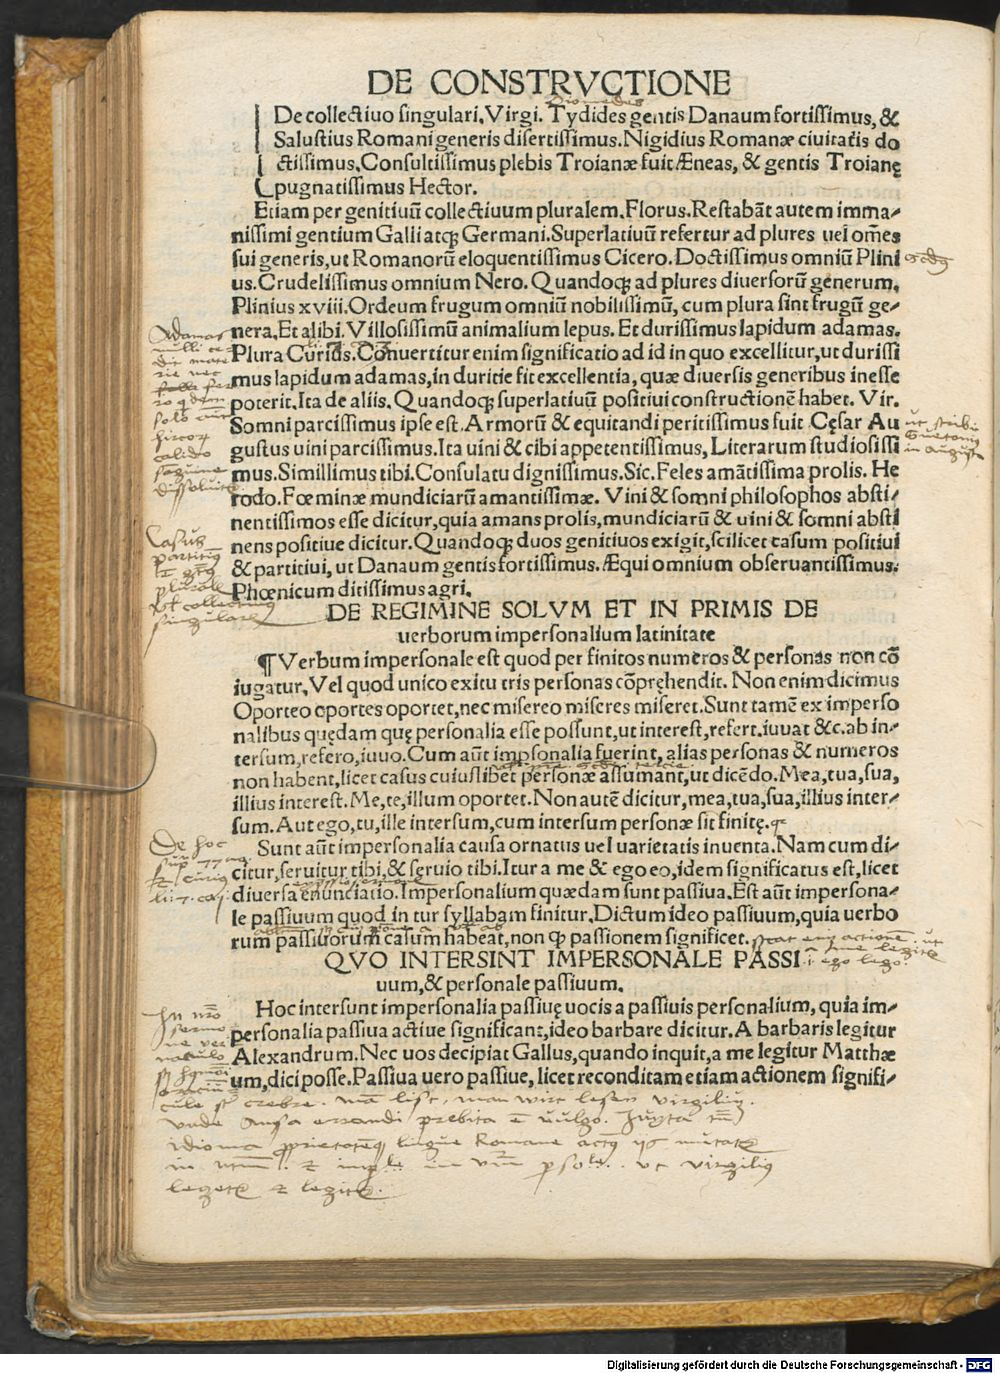 DE CONSTRVCTIONE
Diomedes
De collectiuo singulari. Virgi. Tydides gentis Danaum fortissimus, &
Salustius Romani generis disertissimus. Nigidius Romanæ ciuitatis do
ctissimus. Consultissimus plebis Troianæ fuit Æneas, & gentis Troianę
pugnatissimus Hector.
Etiam per genitiuū collectiuum pluralem. Florus. Restabāt autem imma-
nissimi gentium Galli atqꝫ Germani. Superlatiuū refertur ad plures uel oēs
sui generis, ut Romanorū eloquentissimus Cicero. Doctissimus omniū Plini
us. Crudelissimus omnium Nero. Quandoqꝫ ad plures diuersorū generum.
Plinius xviii. Ordeum frugum omniū nobilissimū, cum plura sint frugū ge-
nera. Et alibi. Villosissimū animalium lepus. Et durissimus lapidum adamas.
Plura Curius. Cōuertitur enim significatio ad id in quo excellitur, ut durissi
mus lapidum adamas, in duritie fit excellentia, quæ diuersis generibus inesse
poterit. Ita de aliis. Quandoqꝫ superlatiuū positiui constructionē habet. Vir.
Somni parcissimus ipse est. Armorū & equitandi peritissimus fuit Cęsar Au
gustus uini parcissimus. Ita uini & cibi appetentissimus, Literarum studiosissi
mus. Simillimus tibi. Consulatu dignissimus. Sic. Feles amātissima prolis. He
rodo. Fœminæ mundiciarū amantissimæ. Vini & somni philosophos absti-
nentissimos esse dicitur, quia amans prolis, mundiciarū & uini & somni absti
nens positiue dicitur. Quandoqꝫ duos genitiuos exigit, scilicet casum positiui
& partitiui, ut Danaum gentis fortissimus. Æqui omnium obseruantissimus.
Phœnicum ditissimus agri.
DE REGIMINE SOLVM ET IN PRIMIS DE
uerborum impersonalium latinitate
¶ Verbum impersonale est quod per finitos numeros & personas non cō
iugatur. Vel quod unico exitu tris personas cōpręhendit. Non enim dicimus
Oporteo oportes oportet, nec misereo miseres miseret. Sunt tamē ex imperso
nalibus quędam quę personalia esse possunt, ut interest, refert, iuuat &c. ab in-
tersum, refero, iuuo. Cum aūt impsonalia fuerint, alias personas & numeros
non habent, licet casus cuiuslibet personæ assumant, ut dicēdo. Mea, tua, sua,
illius interest. Me, te, illum oportet. Non autē dicitur, mea, tua, sua, illius inter-
sum. Aut ego, tu, ille intersum, cum intersum personæ sit finitę.
Sunt aūt impersonalia causa ornatus uel uarietatis inuenta. Nam cum di-
citur, seruitur tibi, & seruio tibi. Itur a me & ego eo, idem significatus est, licet
diuersa enunciatio. Impersonalium quædam sunt passiua. Est aūt impersona-
le passiuum quod in tur syllabam finitur. Dictum ideo passiuum, quia uerbo
rum passiuorum casum habeat, non qꝫ passionem significet.
QVO INTERSINT IMPERSONALE PASSI
uum, & personale passiuum.
Hoc intersunt impersonalia passiuę uocis a passiuis personalium, quia im-
personalia passiua actiue significant, ideo barbare dicitur. A barbaris legitur
Alexandrum. Nec uos decipiat Gallus, quando inquit, a me legitur Matthæ
um, dici posse. Passiua uero passiue, licet reconditam etiam actionem signifi-
Adamas
nulli
solo
hircorū
calido
sanguine
dissoluitur
Casus
partitiui
plurale
collectiuus
singulare
De hoc
crebre
man wirt lesen virgiliū.
vnde Ansa errandi prebita ē vulgo. Iuxta
idioma
lingue Romane
virgiliꝰ
legetur
legitur
Digitalisierung gefördert durch die Deutsche Forschungsgemeinschaft - DFG